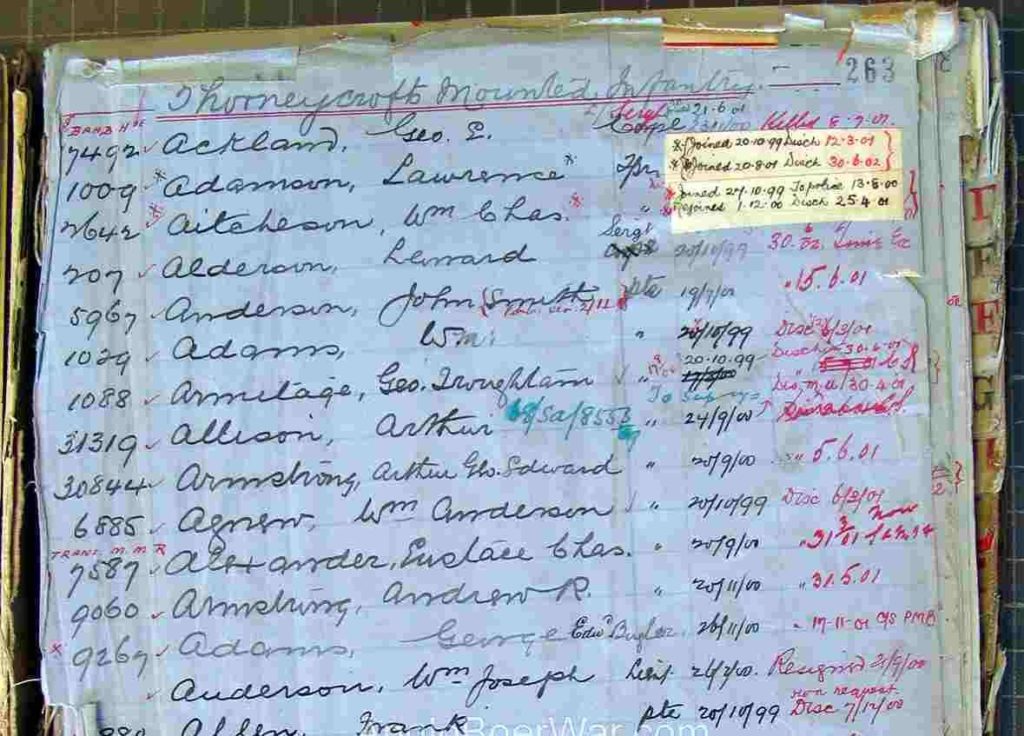 263
Thorneycrofts Mounted Infantry.
BRAB HSE Sergt 21.6.01
7492 Ackland, Geo. E. Corpl Killed 8.7.01.
* Joined 20.10.99 Disch 12.3.01
1009 * Adamson, Lawrence * Tpr * Joined 20.8.01 Disch 30.6.02
Joined 27.10.99 To police 13.8.00
2642 * Aitcheson, Wm Chas. * " Rejoined 1.12.00 Disch 25.4.01
Sergt
207 Alderson, Leonard 20/10/99 30.6.02
5967 Anderson, John (Smith) pte " 15.6.01
1029 Adams, Wm " 20/10/99 Disc
20.10.99 Disch 30.6.01
1088 Armitage, Geo. Troughtam "
31319 Allison, Arthur 68/Sa/8553 " 24/9/00
30844 Armstrong, Arthur Geo. Edward " 20/9/00 " 5.6.01
6885 Agnew, Wm Anderson " 20/10/99 Disc 6/3/01
TRANS. M.M.R
7587 Alexander, Eustace Chas. " 20/9/00 " 31
9060 Armstrong, Andrew R. " 20/11/00 " 31.5.01
* 9267 Adams, George Edwd Bugler 26/11/00 " 17-11-01
Anderson, Wm Joseph Lieut. Resigned
own request
Allen, Frank pte 20/10/99 Disc 7/12/00
BoerWar.com